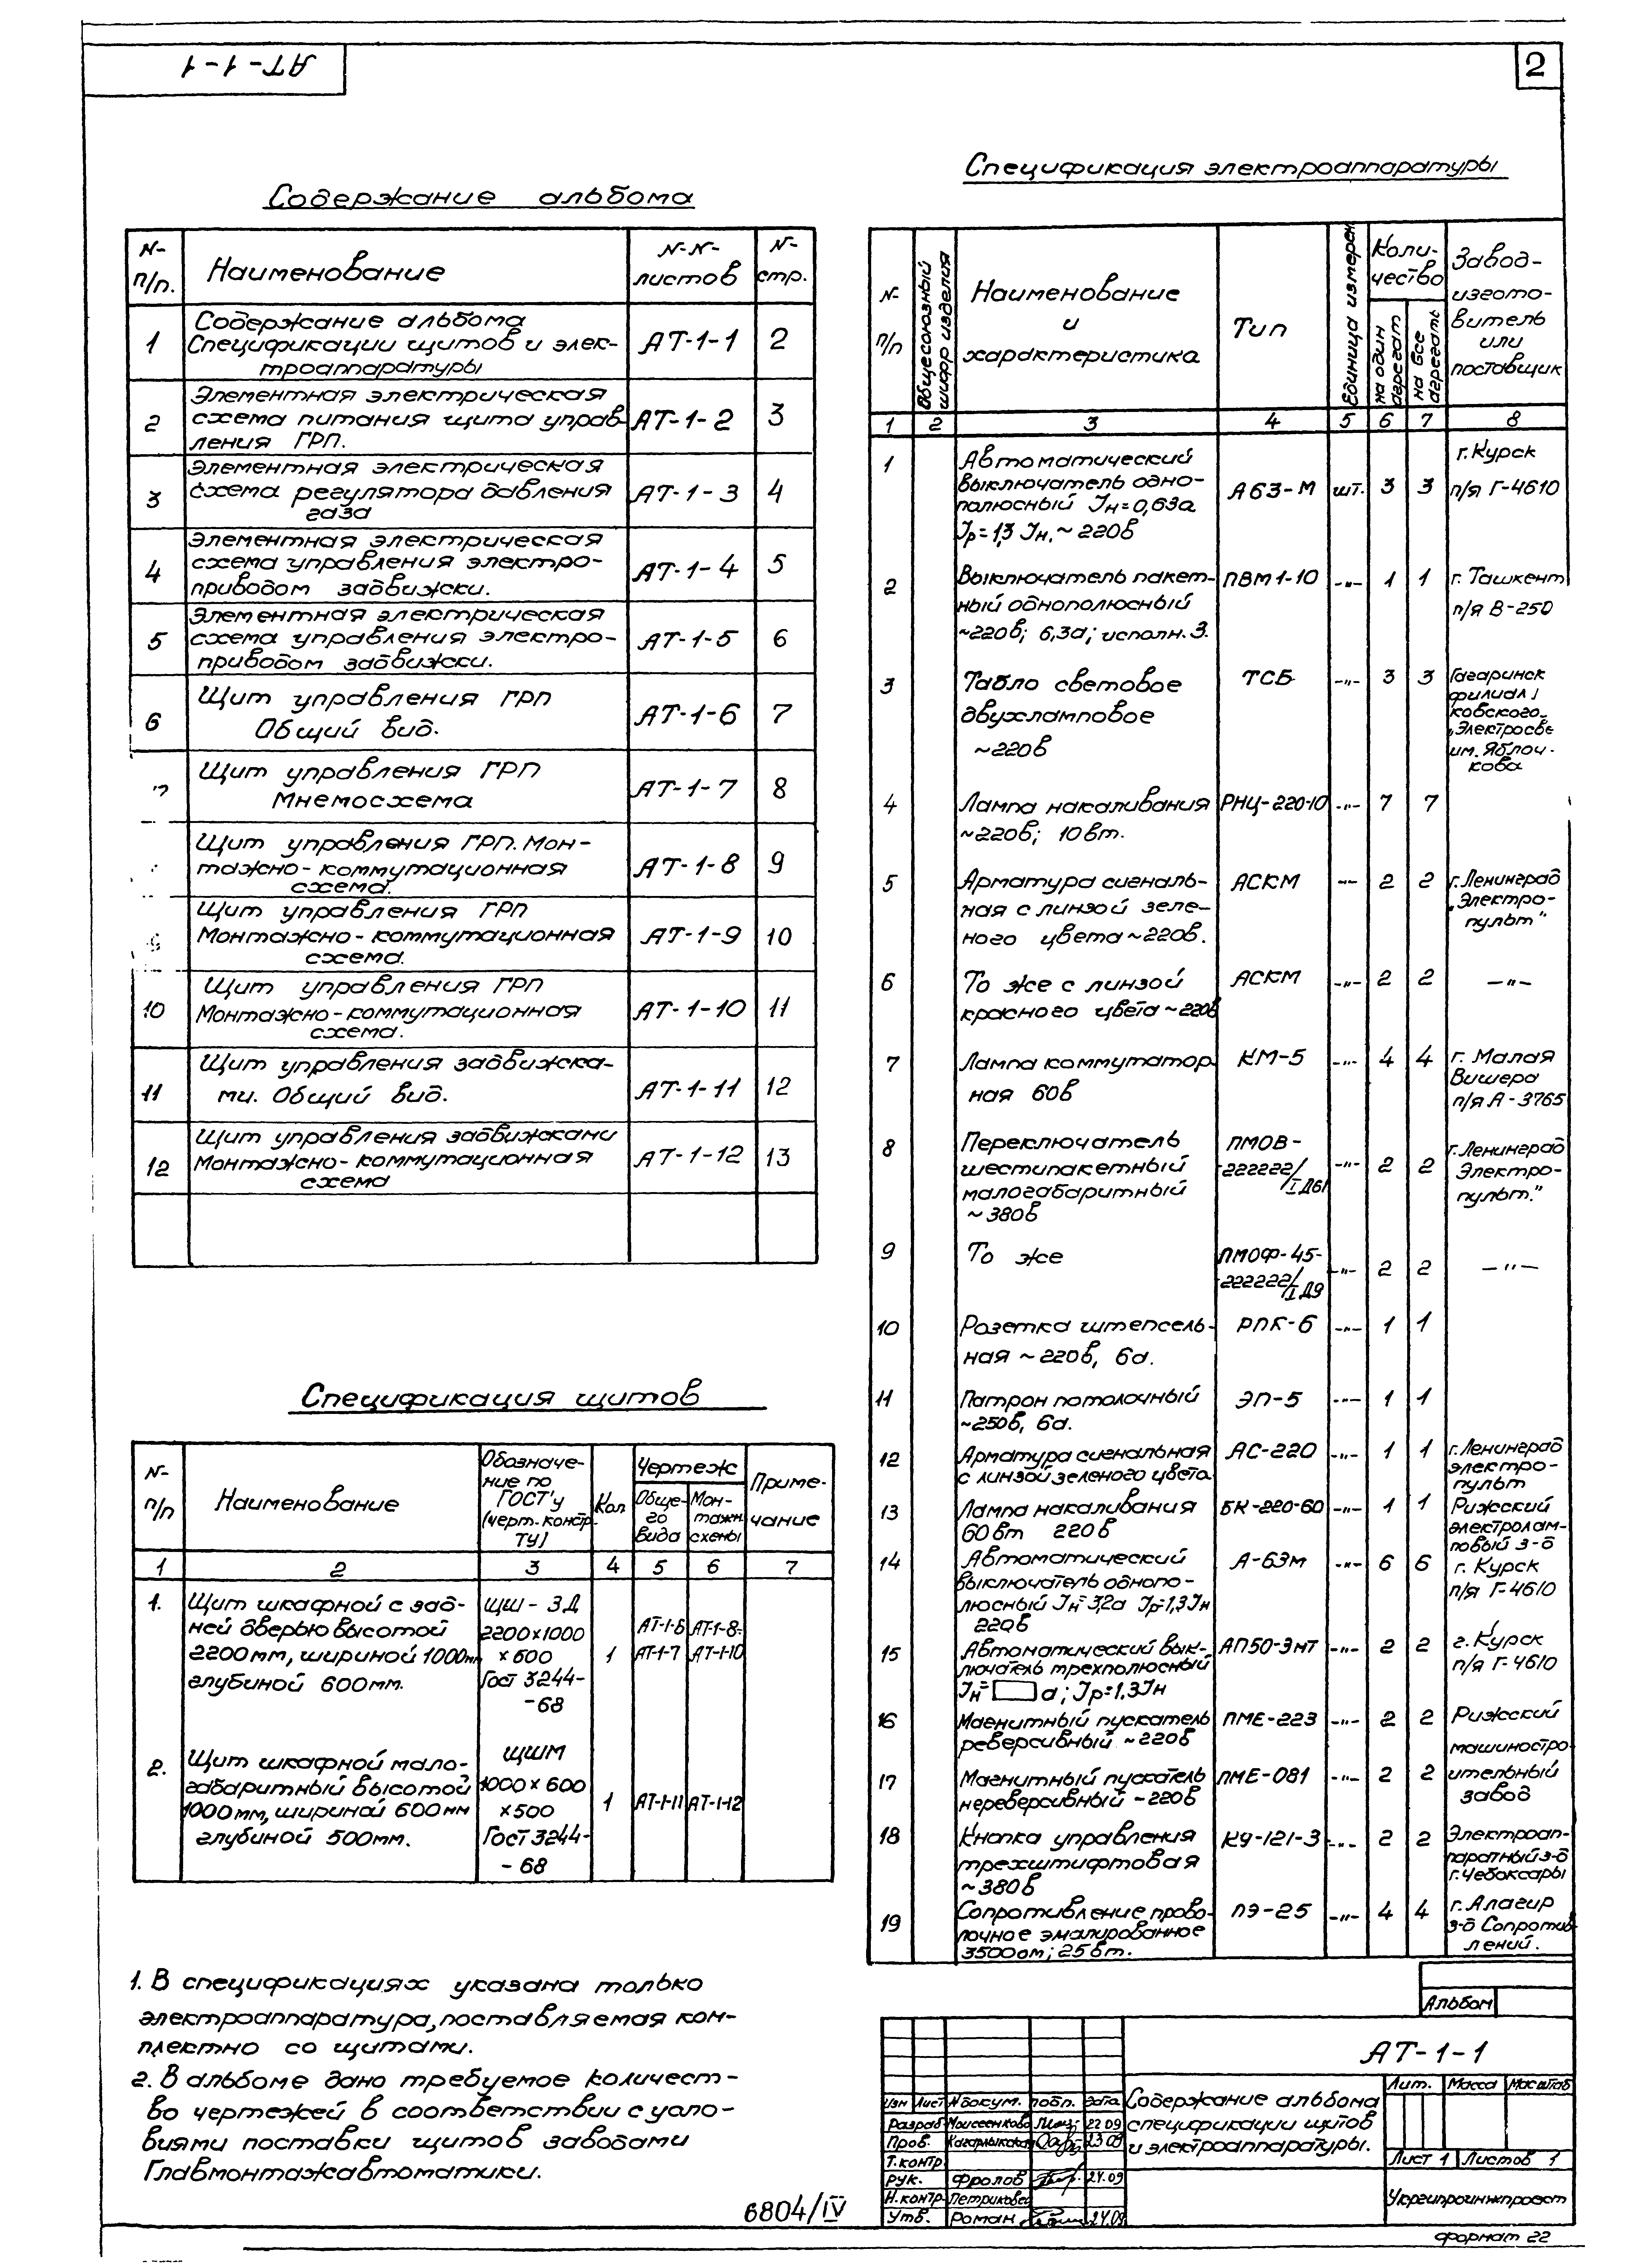 АТ-1-1
2
Содержание альбома
N- п/п. Наименование N-N- листов N- стр.
1 Содержание альбома
Спецификации щитов и элек-
троаппаратуры АТ-1-1 2
2 Элементная электрическая
схема питания щита управ-
ления ГРП. АТ-1-2 3
3 Элементная электрическая
схема регулятора давления
газа АТ-1-3 4
4 Элементная электрическая
схема управления электро-
приводом задвижки. АТ-1-4 5
5 Элементная электрическая
схема управления электро-
приводом задвижки. АТ-1-5 6
6 Щит управления ГРП
Общий вид. АТ-1-6 7
7 Щит управления ГРП
Мнемосхема АТ-1-7 8
Щит управления ГРП. Мон-
тажно-коммутационная
схема. АТ-1-8 9
Щит управления ГРП
Монтажно-коммутационная
схема. АТ-1-9 10
10 Щит управления ГРП
Монтажно-коммутационная
схема. АТ-1-10 11
11 Щит управления задвижка-
ми. Общий вид. АТ-1-11 12
12 Щит управления задвижками
Монтажно-коммутационная
схема АТ-1-12 13
Спецификация щитов
N- п/п Наименование Обозначе-
ние по
ГОСТ'у
(черт. констр.
ТУ) Кол Чертеж
Обще-
го
вида Мон-
тажн.
схемы Приме-
чание
1 2 3 4 5 6 7
1. Щит шкафной с зад-
ней дверью высотой
2200мм, шириной 1000мм
глубиной 600мм. ЩШ-ЗД
2200х1000
х600
Гост 3244-
-68 1 АТ-1-6 АТ-1-8-
АТ-1-7 АТ-1-10
2. Щит шкафной мало-
габаритный высотой
1000мм, шириной 600мм
глубиной 500мм. ЩШМ
1000х600
х500
Гост 3244-
-68 1 АТ-1-11 АТ-1-12
1. В спецификациях указана только
электроаппаратура, поставляемая ком-
плектно со щитами.
2. В альбоме дано требуемое количест-
во чертежей в соответствии с усло-
виями поставки щитов заводами
Главмонтажавтоматики.
6804/IV
Спецификация электроаппаратуры
N- п/п Общесоюзный
шифр изделия Наименование
и
характеристика Тип Единица измерен. Коли-
чество
на один
агрегат на все
агрегаты Завод-
изгото-
витель
или
поставщик
1 2 3 4 5 6 7 8
1 Автоматический
выключатель одно-
полюсный Jн=0,63а
Jр=1,3 Jн. ~220в А63-М шт. 3 3 г. Курск
п/я Г-4610
2 Выключатель пакет-
ный однополюсный
~220в; 6,3а; исполн. 3. ПВМ1-10 -"- 1 1 г. Ташкент
п/я В-250
3 Табло световое
двухламповое
~220в ТСБ -"- 3 3 Гагаринск
филиал
ковского
„Электросве
им. Яблоч-
кова
4 Лампа накаливания
~220в; 10вт. РНЦ-220-10 -"- 7 7
5 Арматура сигналь-
ная с линзой зеле-
ного цвета ~220в. АСКМ -"- 2 2 г. Ленинград
„Электро-
пульт"
6 То же с линзой
красного цвета ~220в АСКМ -"- 2 2 -"-
7 Лампа коммутатор-
ная 60в КМ-5 -"- 4 4 г. Малая
Вишера
п/я А-3765
8 Переключатель
шестипакетный
малогабаритный
~380в ПМОВ-
222222/I Д61 -"- 2 2 г. Ленинград
Электро-
пульт."
9 То же ПМОФ-45-
222222/I Д9 -"- 2 2 -"-
10 Розетка штепсель-
ная ~220в, 6а. РПК-6 -"- 1 1
11 Патрон потолочный
~250в, 6а. ЭП-5 -"- 1 1
12 Арматура сигнальная
с линзой зеленого цвета АС-220 -"- 1 1 г. Ленинград
электро-
пульт
13 Лампа накаливания
60вт 220в БК-220-60 -"- 1 1 Рижский
электролам-
повый з-д
14 Автоматический
выключатель однопо-
люсный Jн=3,2а Jр=1,3Jн
220в А-63м -"- 6 6 г. Курск
п/я Г-4610
15 Автоматический вык-
лючатель трехполюсный
Jн= а; Jр=1,3Jн АП50-3МТ -"- 2 2 г. Курск
п/я Г-4610
16 Магнитный пускатель
реверсивный ~220в ПМЕ-223 -"- 2 2 Рижский
машиностро-
17 Магнитный пускатель
нереверсивный ~220в ПМЕ-081 -"- 2 2 ительный
завод
18 Кнопка управления
трехштифтовая
~380в КУ-121-3 -"- 2 2 Электроап-
паратный з-д
г. Чебоксары
19 Сопротивление прово-
лочное эмалированное
3500ом; 25вт. ПЭ-25 -"- 4 4 г. Алагир
з-д Сопротив-
лений.
Альбом
АТ-1-1
Изм Лист N докум. подп. дата
Разраб. Моисеенкова 22.09
Пров. 23.09
Т.контр
Рук. Фролов 24.09
Н.контр. Петриковец
Утв. Роман 24.09
Содержание альбома
спецификации щитов
и электроаппаратуры.
Лит. Масса Масштаб
Лист 1 Листов 1
Укргипроинжпроект
Формат 22